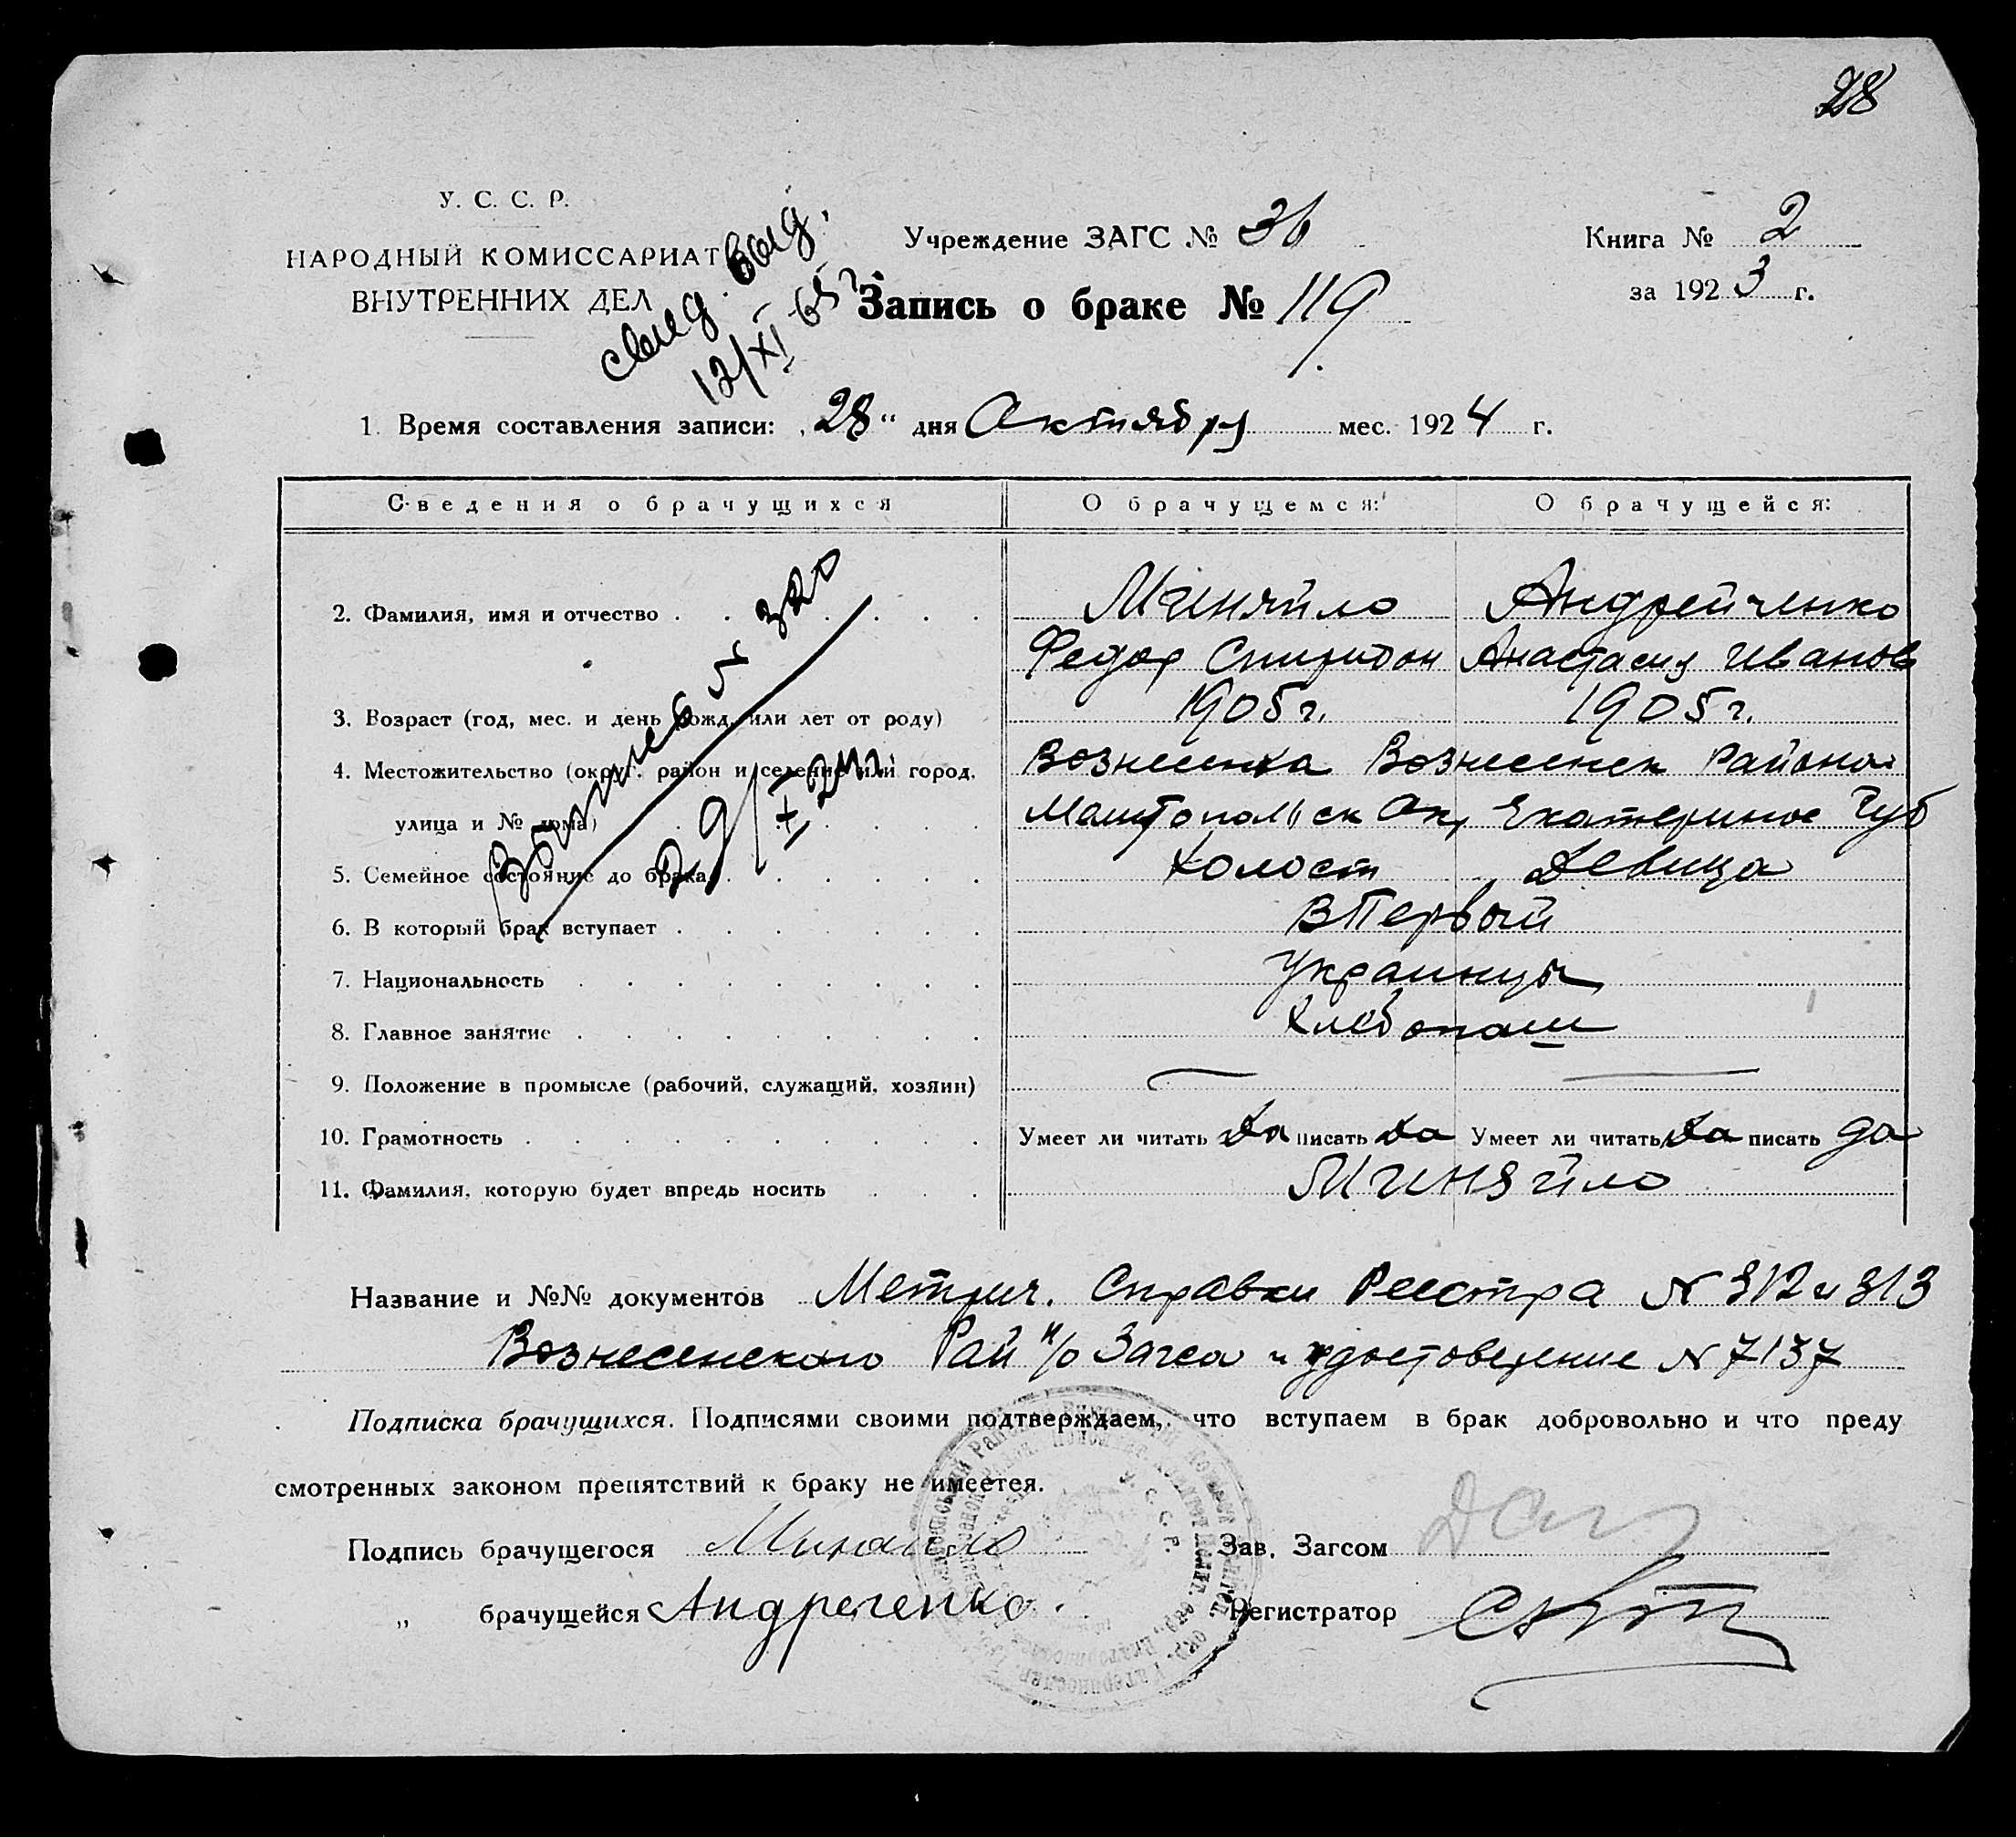 28
У. С. С. Р.
НАРОДНЫЙ КОМИССАРИАТ
ВНУТРЕННИХ ДЕЛ
свид. выд.
12/XI 65 г.
Учреждение ЗАГС № 36
Книга № 2
за 1923 г.
Запись о браке № 119
1. Время составления записи: „28“ дня Октября мес. 1924 г.
Сведения о брачущихся О брачущемся: О брачущейся:
2. Фамилия, имя и отчество Миняйло Андрейченко
Федор Спиридон Анастасия Иванов
3. Возраст (год, мес. и день рожд. или лет от роду) 1905 г. 1905 г.
4. Местожительство (округ, район и селение или город, Вознесенка Вознесенск Района
улица и № дома) Мелитопольск Ок, Екатеринос Губ
5. Семейное состояние до брака Холост Девица
6. В который брак вступает ВПервый
7. Национальность Украинцы
8. Главное занятие Хлебопаш
9. Положение в промысле (рабочий, служащий, хозяин)
10. Грамотность Умеет ли читать Да писать Да Умеет ли читать Да писать да
11. Фамилия, которую будет впредь носить Миняйло
№ 320
29/X 24 г.
Название и №№ документов Метрич. Справки Реестра № 312 и 313
Вознесенского Рай п/о Загса и удостоверение № 7137
Подписка брачущихся. Подписями своими подтверждаем, что вступаем в брак добровольно и что преду
смотренных законом препятствий к браку не имеется.
Подпись брачущегося Минаило Зав. Загсом
„ брачущейся Андреченко. Регистратор
У. С. С. Р.